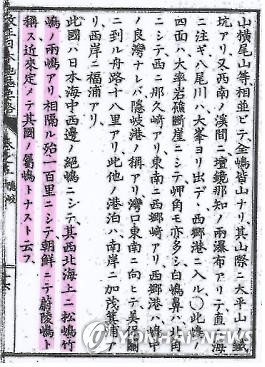 山横尾山等相並ヒテ金嶋皆山ナリ其山際ニ大平山ノ鐵
坑アリ又西南ノ溪間ニ壇鏡那知ノ兩瀑布アリテ直ニ海
ニ注キ八尾川ハ大峯ヨリ出デ、西郷港ニ入ル○此嶋
四面ハ大率岩礁斷崖ニシテ岬角モ亦多シ白嶋鼻ハ北角
ニシテ西ニ那久崎アリ東南ニ西郷崎アリ西郷港ハ嶋中
ノ良灣ナレハ隱岐港ノ稱アリ灣口東南ニ向ヒテ美保關
ニ到ル舟路十八里アリ此他ノ港泊ハ南岸ニ加茂箕浦ア
リ西岸ニ福浦アリ
此國ハ日本海中西邊ノ絶嶋ニシテ其西北海上ニ松嶋竹
嶋ノ兩嶋アリ相隔ル殆一百里ニシテ朝鮮ニテ蔚陵嶋ト
稱ス近來定メテ其國ノ屬嶋トナスト云フ
YONHAP NEWS